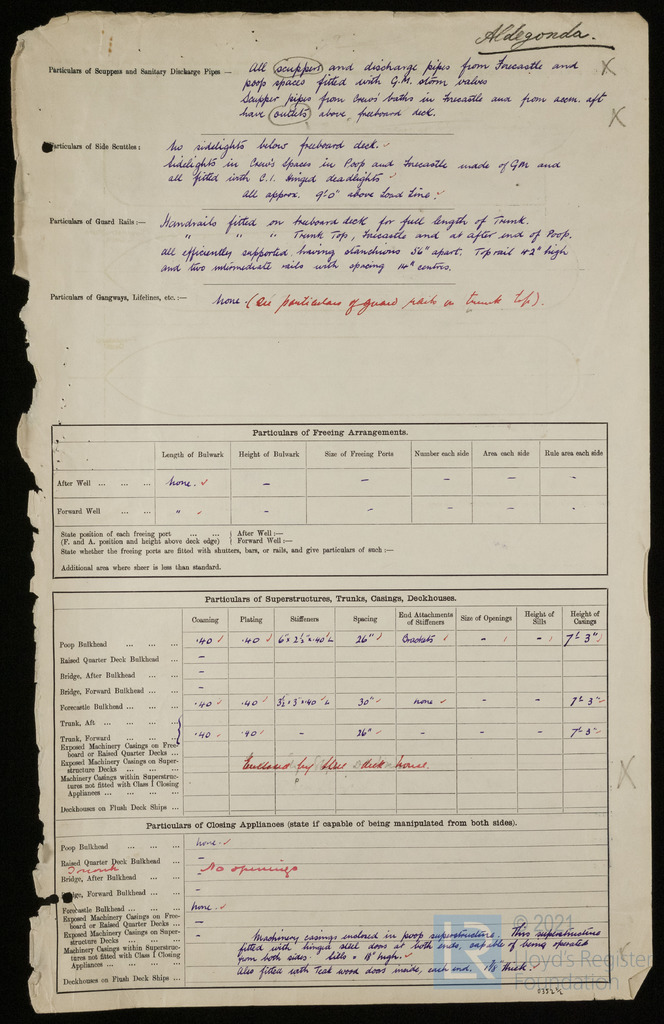 Aldegonda.
Particulars of Scuppers and Sanitary Discharge Pipes — All scuppers and discharge pipes from Forecastle and
poop spaces fitted with G.M. storm valves
Scupper pipes from Crews' baths in Forecastle and from accm. aft
have outlets above freeboard deck.
Particulars of Side Scuttles: No sidelights below freeboard deck.
Sidelights in Crew's Spaces in Poop and Forecastle made of GM and
all fitted with C.I. hinged deadlights
all approx. 9'-0" above Load Line.
Particulars of Guard Rails:— Handrails fitted on freeboard deck for full length of Trunk.
" " " Trunk Top, Forecastle and at after end of Poop.
all efficiently supported having stanchions 56" apart. Top rail 42" high
and two intermediate rails with spacing 14" centres.
Particulars of Gangways, Lifelines, etc.:— None. (See particulars of guard rails on trunk top).
Particulars of Freeing Arrangements.
Length of Bulwark Height of Bulwark Size of Freeing Ports Number each side Area each side Rule area each side
After Well ... ... ... None. – – – – –
Forward Well ... ... " – – – –
State position of each freeing port ... ... { After Well :—
(F. and A. position and height above deck edge) { Forward Well :—
State whether the freeing ports are fitted with shutters, bars, or rails, and give particulars of such :—
Additional area where sheer is less than standard.
Particulars of Superstructures, Trunks, Casings, Deckhouses.
Coaming Plating Stiffeners Spacing End Attachments of Stiffeners Size of Openings Height of Sills Height of Casings
Poop Bulkhead ... ... ... .40 .40 6" x 2½" x .40 L 26" Brackets – – 7'- 3"
Raised Quarter Deck Bulkhead ... –
Bridge, After Bulkhead ... ... –
Bridge, Forward Bulkhead ... ... –
Forecastle Bulkhead ... ... ... .40 .40 3½ x 3 x .40 L 30" None – – 7'- 3"
Trunk, Aft ... ... ... ...
Trunk, Forward ... ... ... .40 .40 – 26" 7'- 3"
Exposed Machinery Casings on Freeboard or Raised Quarter Decks ...
Exposed Machinery Casings on Superstructure Decks ... ... ... Enclosed by steel deck house.
Machinery Casings within Superstructures not fitted with Class I Closing Appliances ... ... ... ...
Deckhouses on Flush Deck Ships ...
Particulars of Closing Appliances (state if capable of being manipulated from both sides).
Poop Bulkhead ... ... ... None.
Raised Quarter Deck Bulkhead ... –
Trunk No openings
Bridge, After Bulkhead ... ...
Bridge, Forward Bulkhead ... ... –
Forecastle Bulkhead ... ... ... None.
Exposed Machinery Casings on Freeboard or Raised Quarter Decks ... –
Exposed Machinery Casings on Superstructure Decks ... ... ... –
Machinery Casings within Superstructures not fitted with Class I Closing Appliances ... ... ... ...
Machinery casings enclosed in poop superstructure. This superstructure
fitted with hinged steel doors at both ends, capable of being operated
from both sides. Sills = 18" high.
Also fitted with Teak wood doors inside, each end. 1⅞" thick.
Deckhouses on Flush Deck Ships ...
© 2021
Lloyd's Register
Foundation